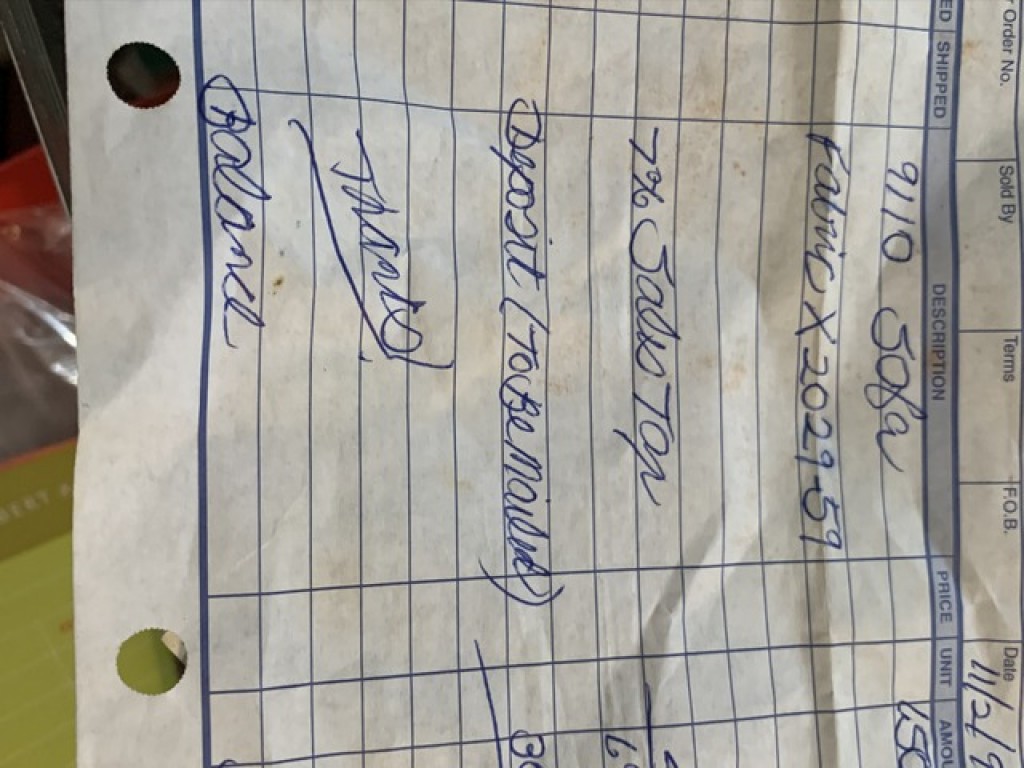 Order No. Sold By Terms F.O.B. Date
11/2/9
SHIPPED DESCRIPTION PRICE UNIT AMOU
9110 Sofa 650
Fabric X2029-59
7% Sales Tax
Deposit (To Be Mailed)
Thanks!
Balance